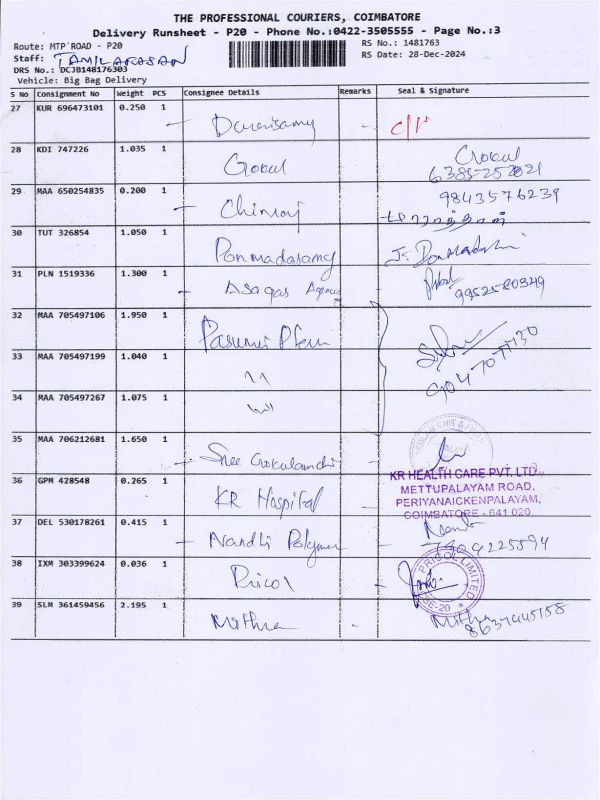 THE PROFESSIONAL COURIERS, COIMBATORE
Delivery Runsheet - P20 - Phone No.:0422-3505555 - Page No.:3
Route: MTP ROAD - P20
RS No.: 1481763
Staff: TAMILARASAN
RS Date: 28-Dec-2024
DRS No.: DCJB148176303
Vehicle: Big Bag Delivery
S No Consignment No Weight PCS Consignee Details Remarks Seal & Signature
27 KUR 696473101 0.250 1 Duraisamy
28 KDI 747226 1.035 1 Gokul Gokul
29 MAA 650254835 0.200 1 Chinraj 9843576239
30 TUT 326854 1.050 1 Ponmadasamy
31 PLN 1519336 1.300 1 Asagas Agency 9952580349
32 MAA 705497106 1.950 1
33 MAA 705497199 1.040 1 "
34 MAA 705497267 1.075 1 "
35 MAA 706212681 1.650 1 Sree
36 GPM 428548 0.265 1 KR Hospital
KR HEALTH CARE PVT. LTD.,
METTUPALAYAM ROAD,
PERIYANAICKENPALAYAM,
COIMBATORE - 641 020.
37 DEL 530178261 0.415 1 Nandhi Polymer
38 IXM 303399624 0.036 1 Pricol
PRICOL LIMITED
CBE-20
39 SLM 361459456 2.195 1 Mithra Mithra